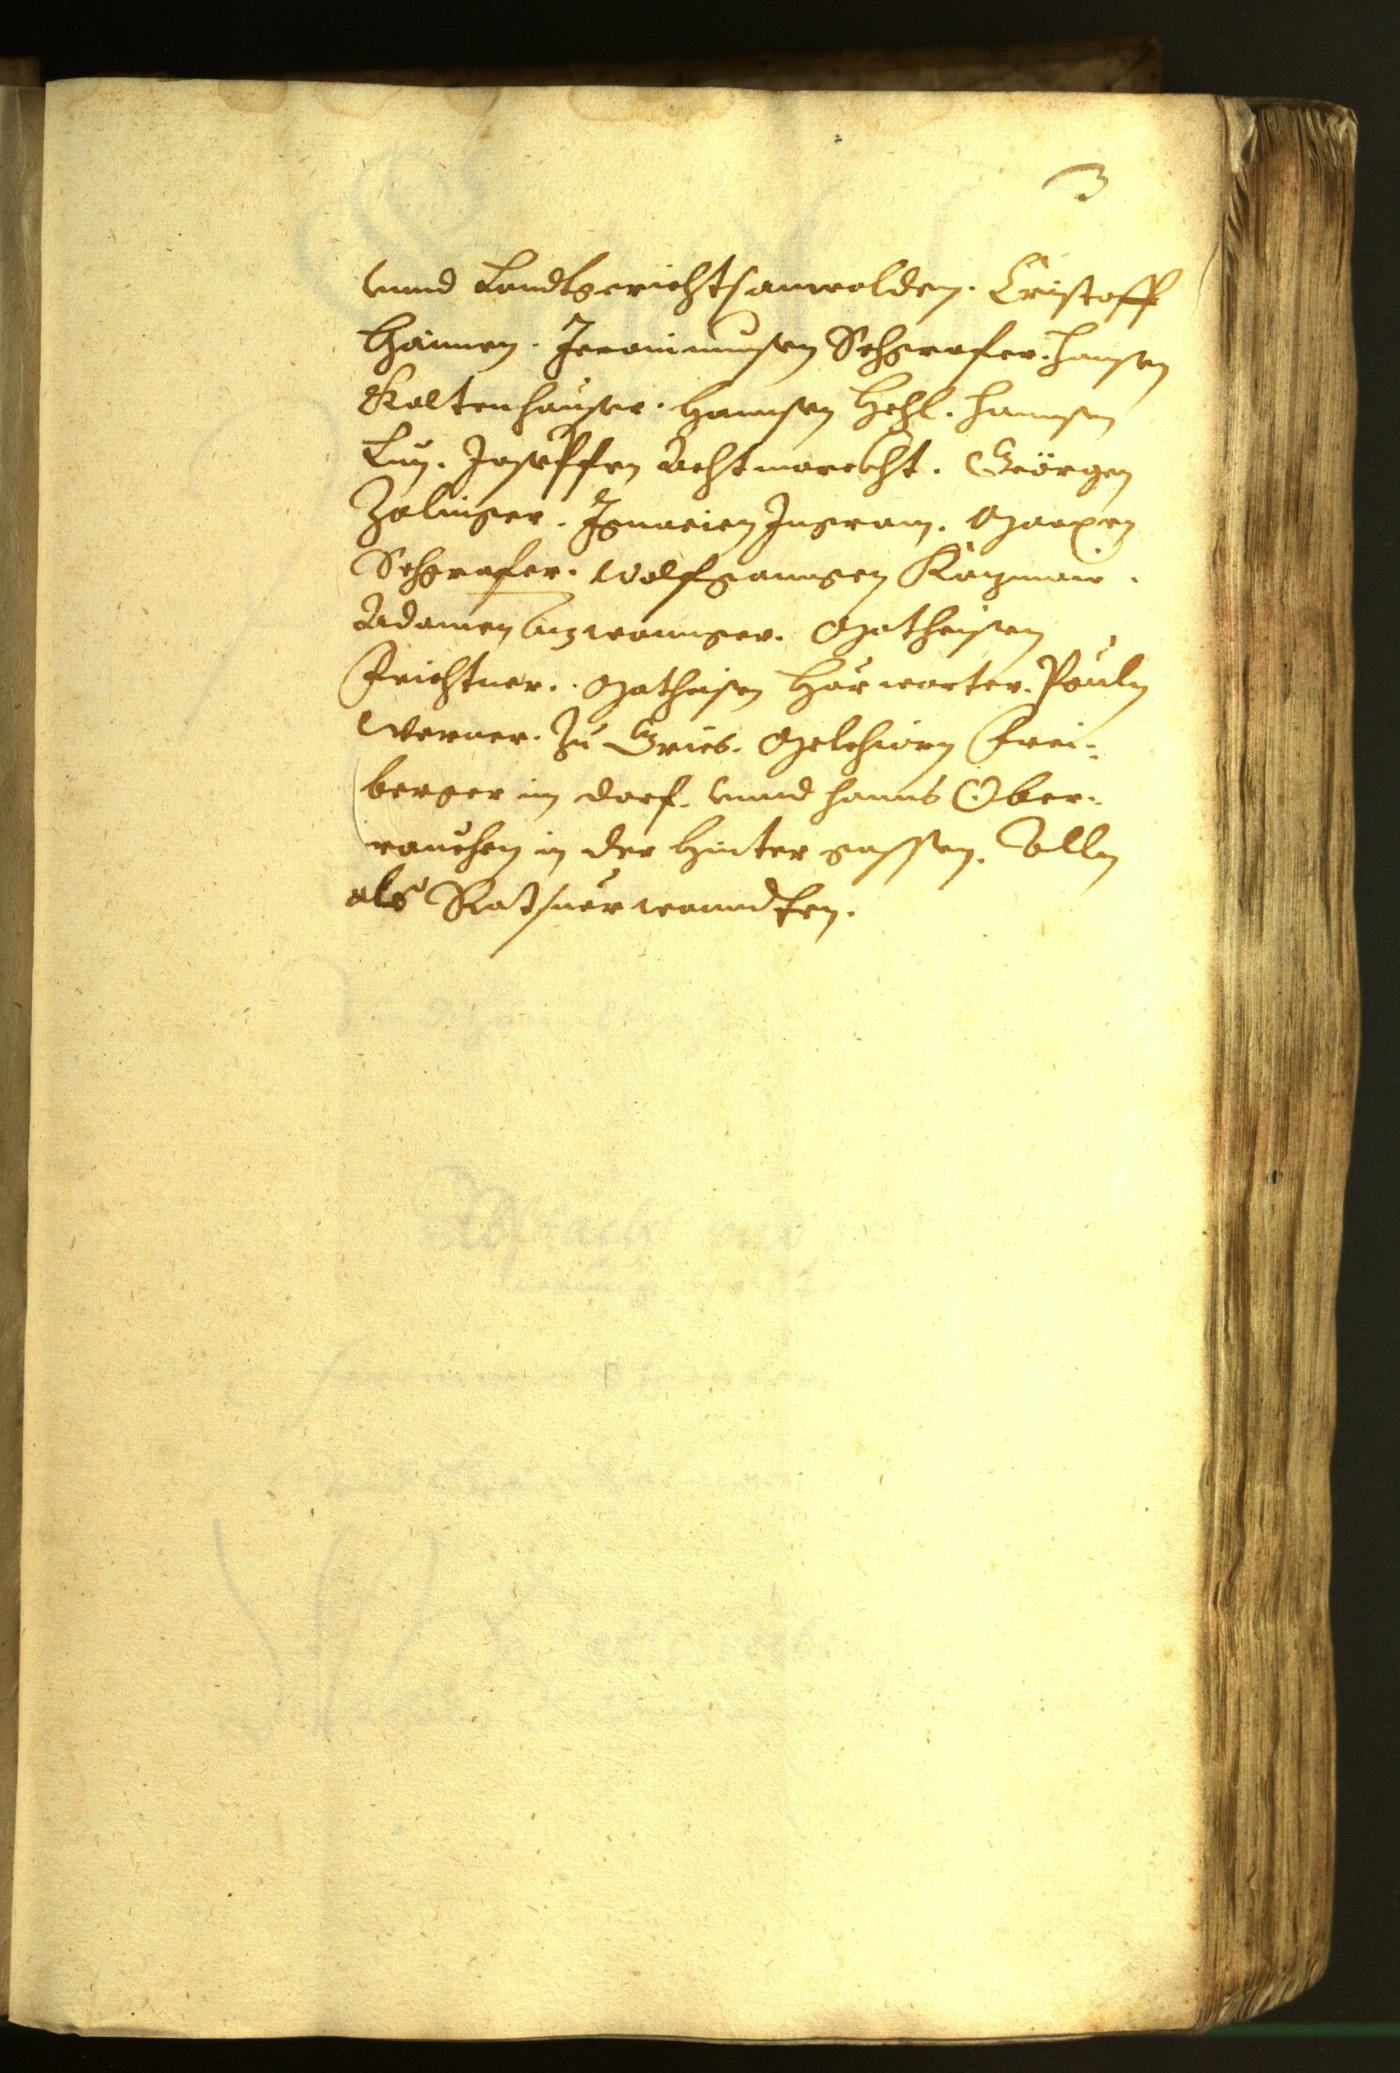 3
vnnd Landtgerichts anwalden. Cristoff
Hainnen. Jeronimussen Schgrafer. Hansen
Kaltenhauser. Hannsen Hehl. Hannsen
Luz. Josepffen Achtmarckht. Geörgen
Zalinger. Ignacien Ingram. Maxen
Schgrafer. Wolfganngen Kazmair.
Adamen Anzwannger. Matheisen
Frichtner. Matheisen Hörwarter. Pauln
Werner. Zu Gries. Melchiorn Frei-
berger im dorf. vnnd hanns Ober-
rauchen in der Hinter gassen. Alln
als Ratsuerwanndten.